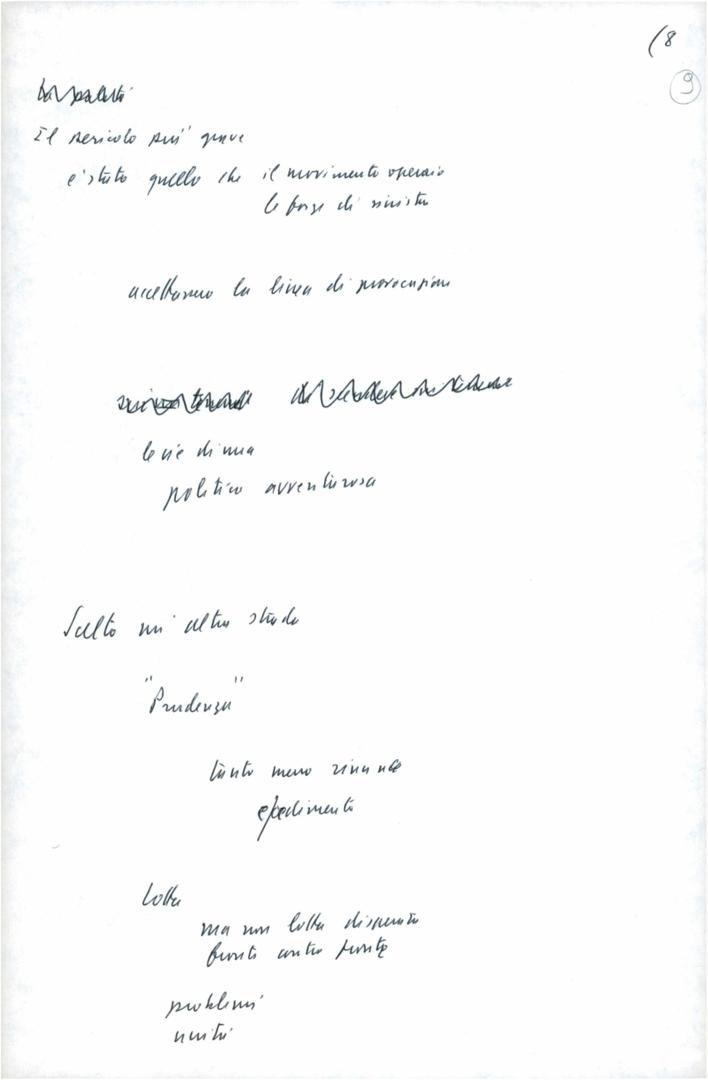 (8
9
Il pericolo più grave
è stato quello che il movimento operaio
le forze di sinistra
accettassero la linea di provocazione
le vie di una
politica avventurosa
Scelto un'altra strada
"Prudenza"
tanto meno rinunce
e cedimento
Lotta
ma non lotta disperata
fronte contro fronte
problemi
unità